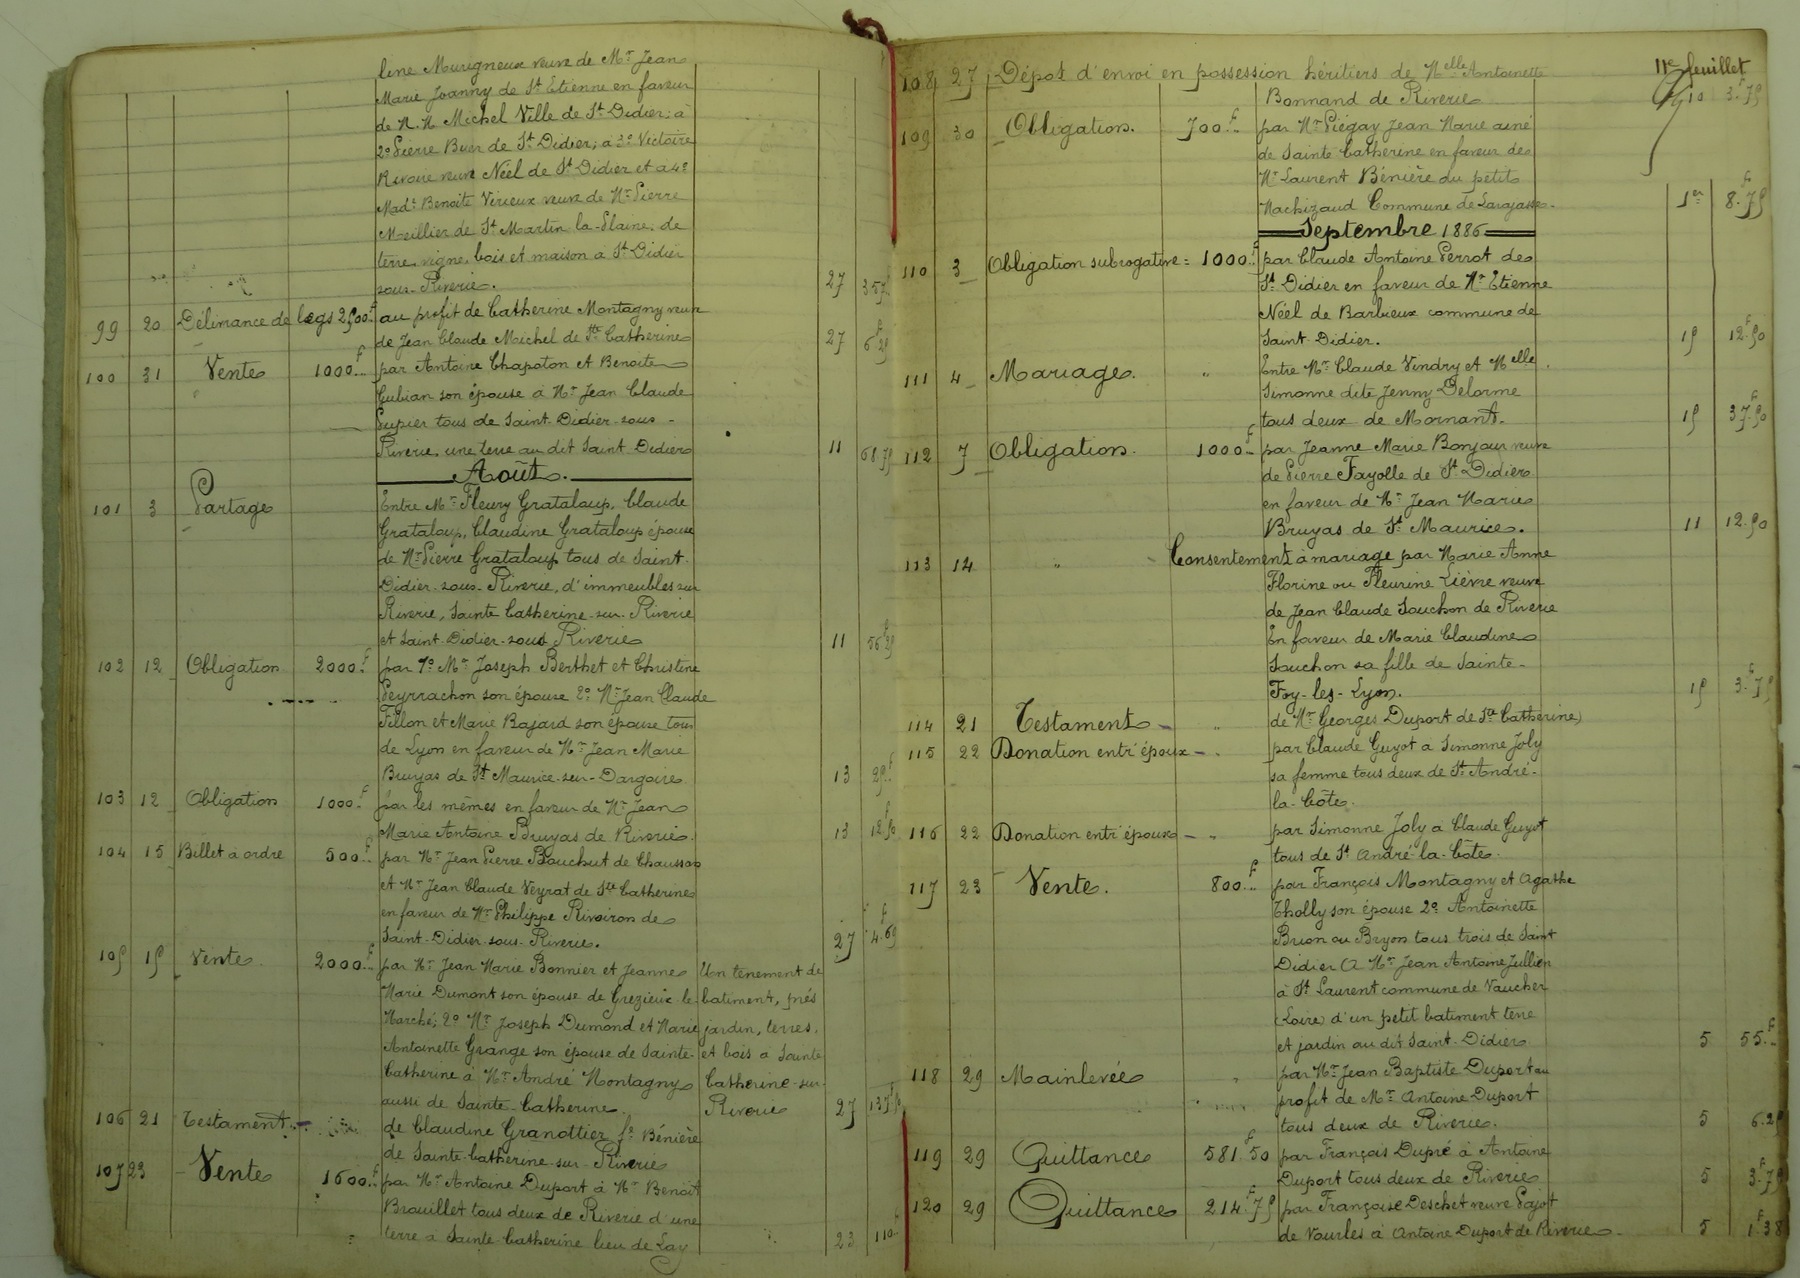 line Murigneux veuve de Mr Jean
Marie Joanny de St Etienne en faveur
de M. M. Michel Ville de St Didier; à
2o Pierre Buer de St Didier; à 3o Victoire
Rivoire veuve Néel de St Didier et à 4o
Made Benoite Virieux veuve de Mr Pierre
Meillier de St Martin la-Plaine, de
terre, vigne, bois et maison à St Didier
sous-Riverie. 27 357f
99 20 Délivrance de legs 2500f au profit de Catherine Montagny veuve
de Jean Claude Michel de Ste Catherine 27 6f25
100 31 Vente 1000f.. par Antoine Chapoton et Benoite
Gubian son épouse à Mr Jean Claude
Pupier tous de Saint-Didier-sous-
Riverie, une terre au dit Saint Didier 11 68.75
Août.
101 3 Partage Entre Mr Fleury Grataloup, Claude
Grataloup, Claudine Grataloup épouse
de Mr Pierre Grataloup tous de Saint-
Didier-sous-Riverie, d'immeubles sur
Riverie, Sainte Catherine-sur-Riverie
et Saint-Didier-sous Riverie 11 56f25
102 12 Obligation 2000.f par 1o Mr Joseph Berthet et Christine
Peyrrachon son épouse 2o Mr Jean Claude
Fillon et Marie Bajard son épouse tous
de Lyon en faveur de Mr Jean Marie
Bruyas de St Maurice-sur-Dargoire 13 25.f
103 12 Obligation 1000.f par les mêmes en faveur de Mr Jean
Marie Antoine Bruyas de Riverie. 13 12f50
104 15 Billet à ordre 500.f par Mr Jean Pierre Bouchut de Chaussan
et Mr Jean Claude Veyrat de Ste Catherine
en faveur de Mr Philippe Rivoiron de
Saint-Didier-sous-Riverie. 27 4f.69
105 15 Vente 2000f.. par Mr Jean Marie Bonnier et Jeanne Un tènement de
Marie Dumont son épouse de Grezieux-le- batiment, prés
Marché; 2o Mr Joseph Dumond et Marie jardin, terres,
Antoinette Grange son épouse de Sainte- et bois à Sainte
Catherine à Mr André Montagny Catherine-sur-
aussi de Sainte-Catherine. Riverie 27 137f50
106 21 Testament de Claudine Granottier fe Bénière
de Sainte-Catherine-sur-Riverie
107 23 Vente 1600f.. par Mr Antoine Duport à Mr Benoit
Brouillet tous deux de Riverie d'une
terre à Sainte Catherine lieu de Lay 23 110f
11e feuillet
108 27 Dépot d'envoi en possession héritiers de Melle Antoinette
Bonnand de Riverie 10 3f75
109 30 Obligation. 700f.. par Mr Piégay Jean Marie ainé
de Sainte Catherine en faveur de
Mr Laurent Bénière du petit
Machizaud Commune de Larajasse. 1er 8f.75
Septembre 1886
110 3 Obligation subrogative = 1000f.. par Claude Antoine Perrot de
St Didier en faveur de Mr Etienne
Néel de Barbieux commune de
Saint-Didier. 15 12f50
111 4 Mariage. " Entre Mr Claude Vindry et Melle
Simonne dite Jenny Delorme
tous deux de Mornant. 15 37f50
112 7 Obligation. 1000f.. par Jeanne Marie Bonjour veuve
de Pierre Fayolle de St Didier
en faveur de Mr Jean Marie
Bruyas de St Maurice. 11 12.50
113 14 " Consentement à mariage par Marie Anne
Florine ou Fleurine Lièvre veuve
de Jean Claude Souchon de Riverie
En faveur de Marie Claudine
Souchon sa fille de Sainte-
Foy-les-Lyon. 15 3f75
114 21 Testament " de Mr Georges Duport de Ste Catherine
115 22 Donation entr'époux " par Claude Guyot à Simonne Joly
sa femme tous deux de St André-
la-Côte.
116 22 Donation entr'époux " par Simonne Joly à Claude Guyot
tous de St André-la-Côte.
117 23 Vente. 800f.. par François Montagny et Agathe
Tholly son épouse 2o Antoinette
Brion ou Bryon tous trois de Saint
Didier à Mr Jean Antoine Jullien
à St Laurent commune de Vaucher
(Loire) d'un petit batiment terre
et jardin au dit Saint-Didier 5 55f..
118 29 Mainlevée " par Mr Jean Baptiste Duport au
profit de Mr Antoine Duport
tous deux de Riverie. 5 6.25
119 29 Quittance 581f50 par François Dupré à Antoine
Duport tous deux de Riverie 5 3f75
120 29 Quittance 214f75 par Françoise Deschet veuve Pajot
de Vourles à Antoine Duport de Riverie 5 1f38